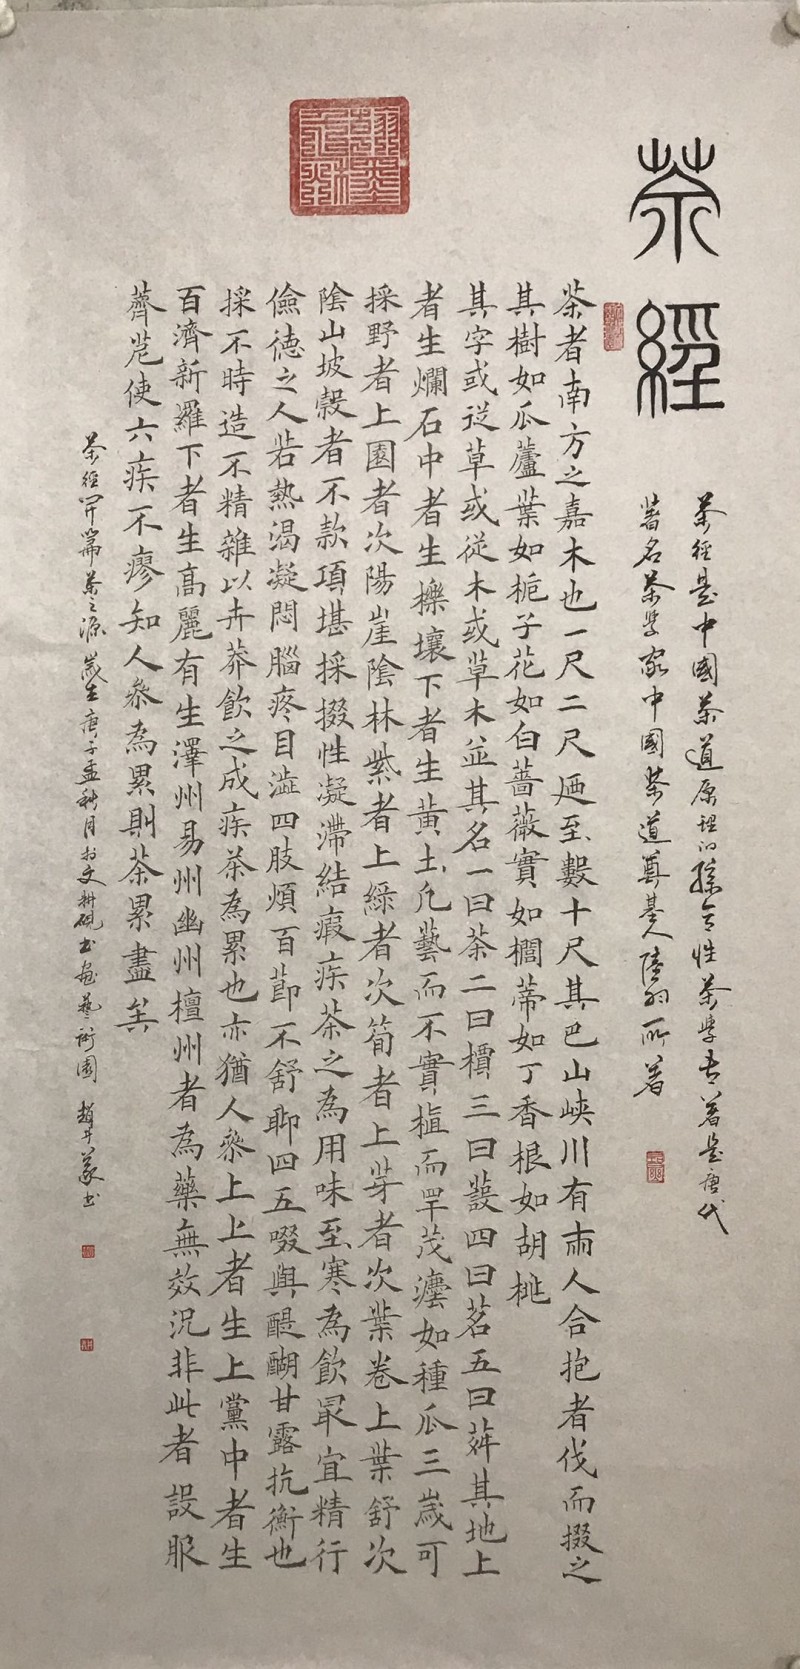 茶經
茶經是中國茶道原理的綜合性茶學專著是唐代
著名茶學家中國茶道奠基人陸羽所著
茶者南方之嘉木也一尺二尺廼至數十尺其巴山峽川有兩人合抱者伐而掇之
其樹如瓜蘆葉如梔子花如白薔薇實如櫚蒂如丁香根如胡桃
其字或從草或從木或草木並其名一曰茶二曰檟三曰蔎四曰茗五曰荈其地上
者生爛石中者生櫟壤下者生黃土凡藝而不實植而罕茂瀍如種瓜三歲可
採野者上園者次陽崖陰林紫者上綠者次筍者上芽者次葉卷上葉舒次
陰山坡穀者不款項堪採掇性凝滯結瘕疾茶之為用味至寒為飲最宜精行
儉德之人若熱渴凝悶腦疼目澁四肢煩百節不舒聊四五啜與醍醐甘露抗衡也
採不時造不精雜以卉莽飲之成疾茶為累也亦猶人參上上者生上黨中者生
百濟新羅下者生高麗有生澤州易州幽州檀州者為藥無效況非此者設服
薺苨使六疾不瘳知人參為累則茶累盡矣
茶經開篇茶之源歲在庚子孟秋月於文耕硯書畫藝術園 趙 書